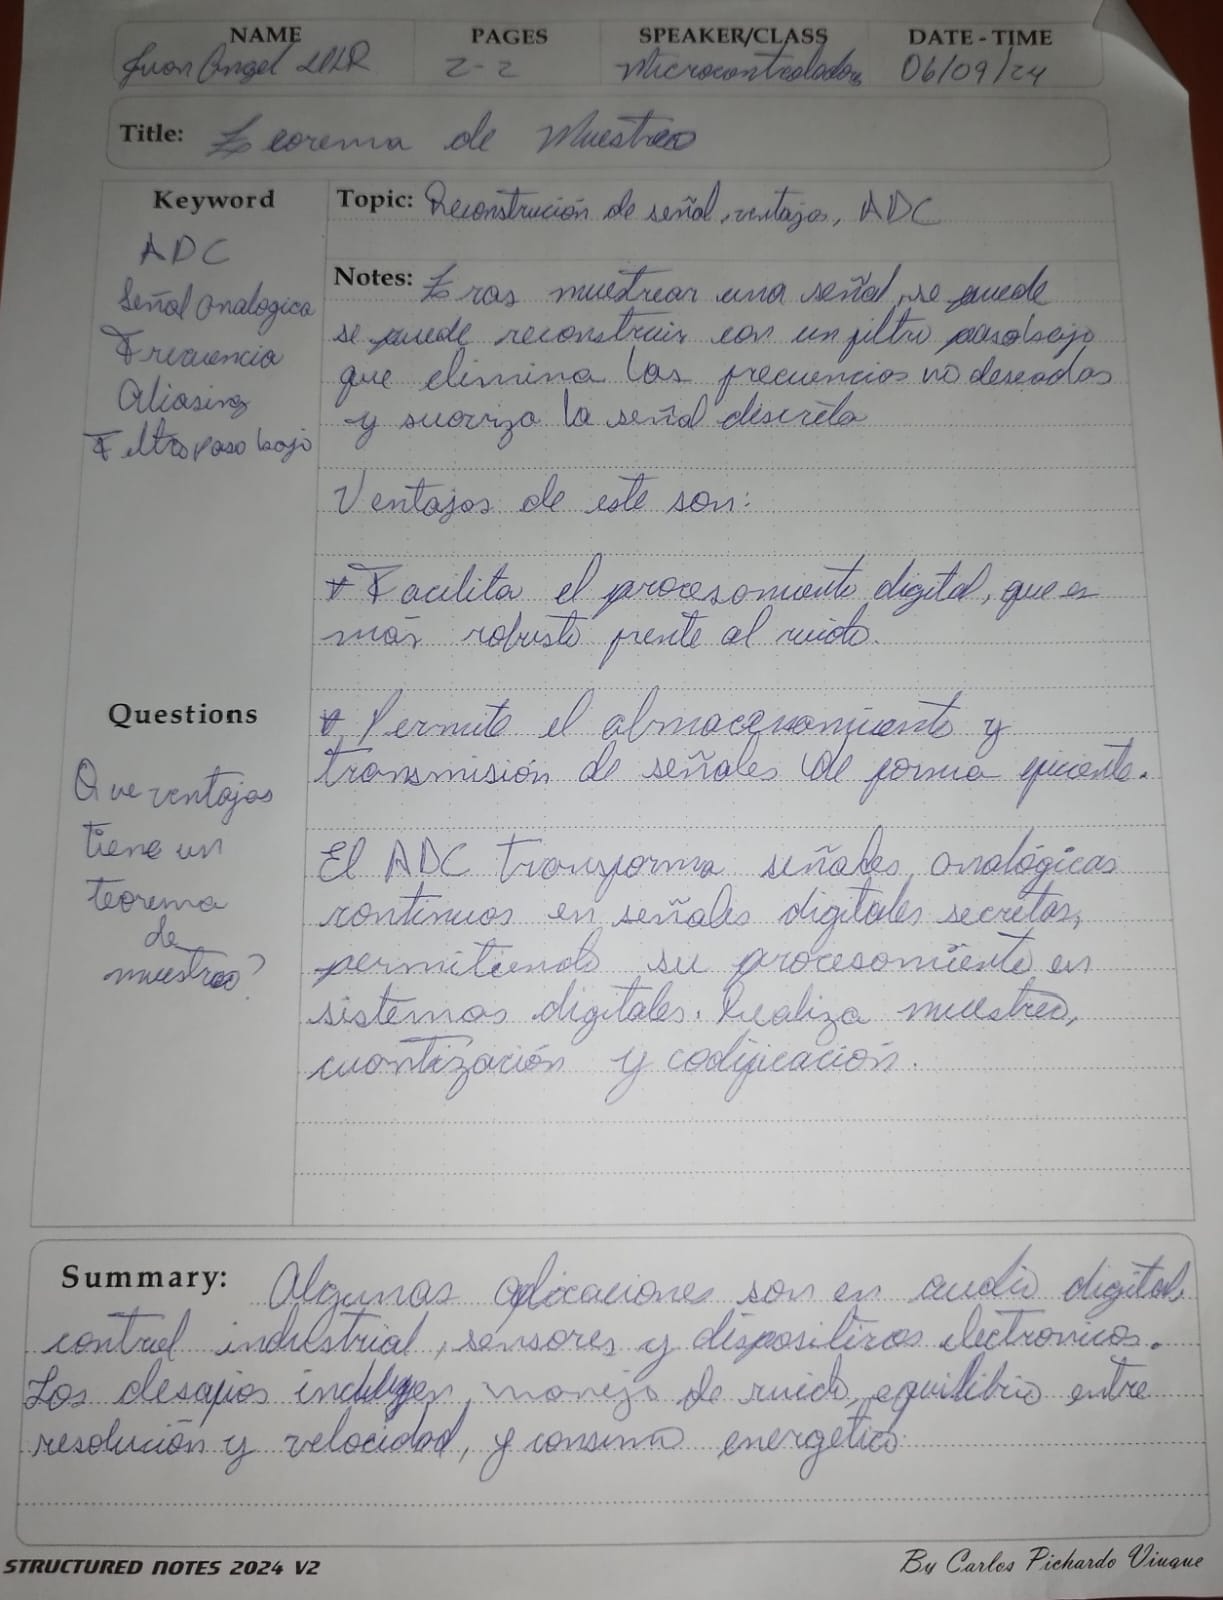 NAME PAGES SPEAKER/CLASS DATE-TIME
Juan Angel 2-2 Microcontrolador 06/09/24
Title: Teorema de Muestreo
Keyword
ADC
Señal analogica
Frecuencia
Aliasing
Filtro paso bajo
Questions
Que ventajas
tiene un
teorema
de
muestreo?
Topic: Reconstrución de señal, ventajas, ADC
Notes: Tras muestrear una señal, se puede
se puede reconstruir con un filtro pasobajo
que elimina las frecuencias no deseadas
y suaviza la señal discreta
Ventajas de este son:
* Facilita el procesamiento digital, que es
más robusto frente al ruido.
* Permite el almacenamiento y
transmisión de señales de forma eficiente.
El ADC transforma señales analógicas
continuas en señales digitales secretas,
permitiendo su procesamiento en
sistemas digitales. Realiza muestreo,
cuantización y codificación.
Summary: Algunas aplicaciones son en audio digital,
control industrial, sensores y dispositivos electronicos.
Los desafios incluyen manejo de ruido, equilibrio entre
resolución y velocidad, y consumo energético
STRUCTURED NOTES 2024 V2
By Carlos Pichardo Viuque